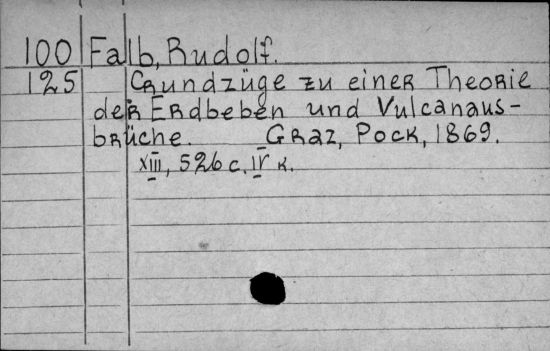 100 Falb, Rudolf.
125 Grundzüge zu einer Theorie
der Erdbeben und Vulcanaus-
brüche. Graz, Pock, 1869.
XIII, 526 c. IV к.